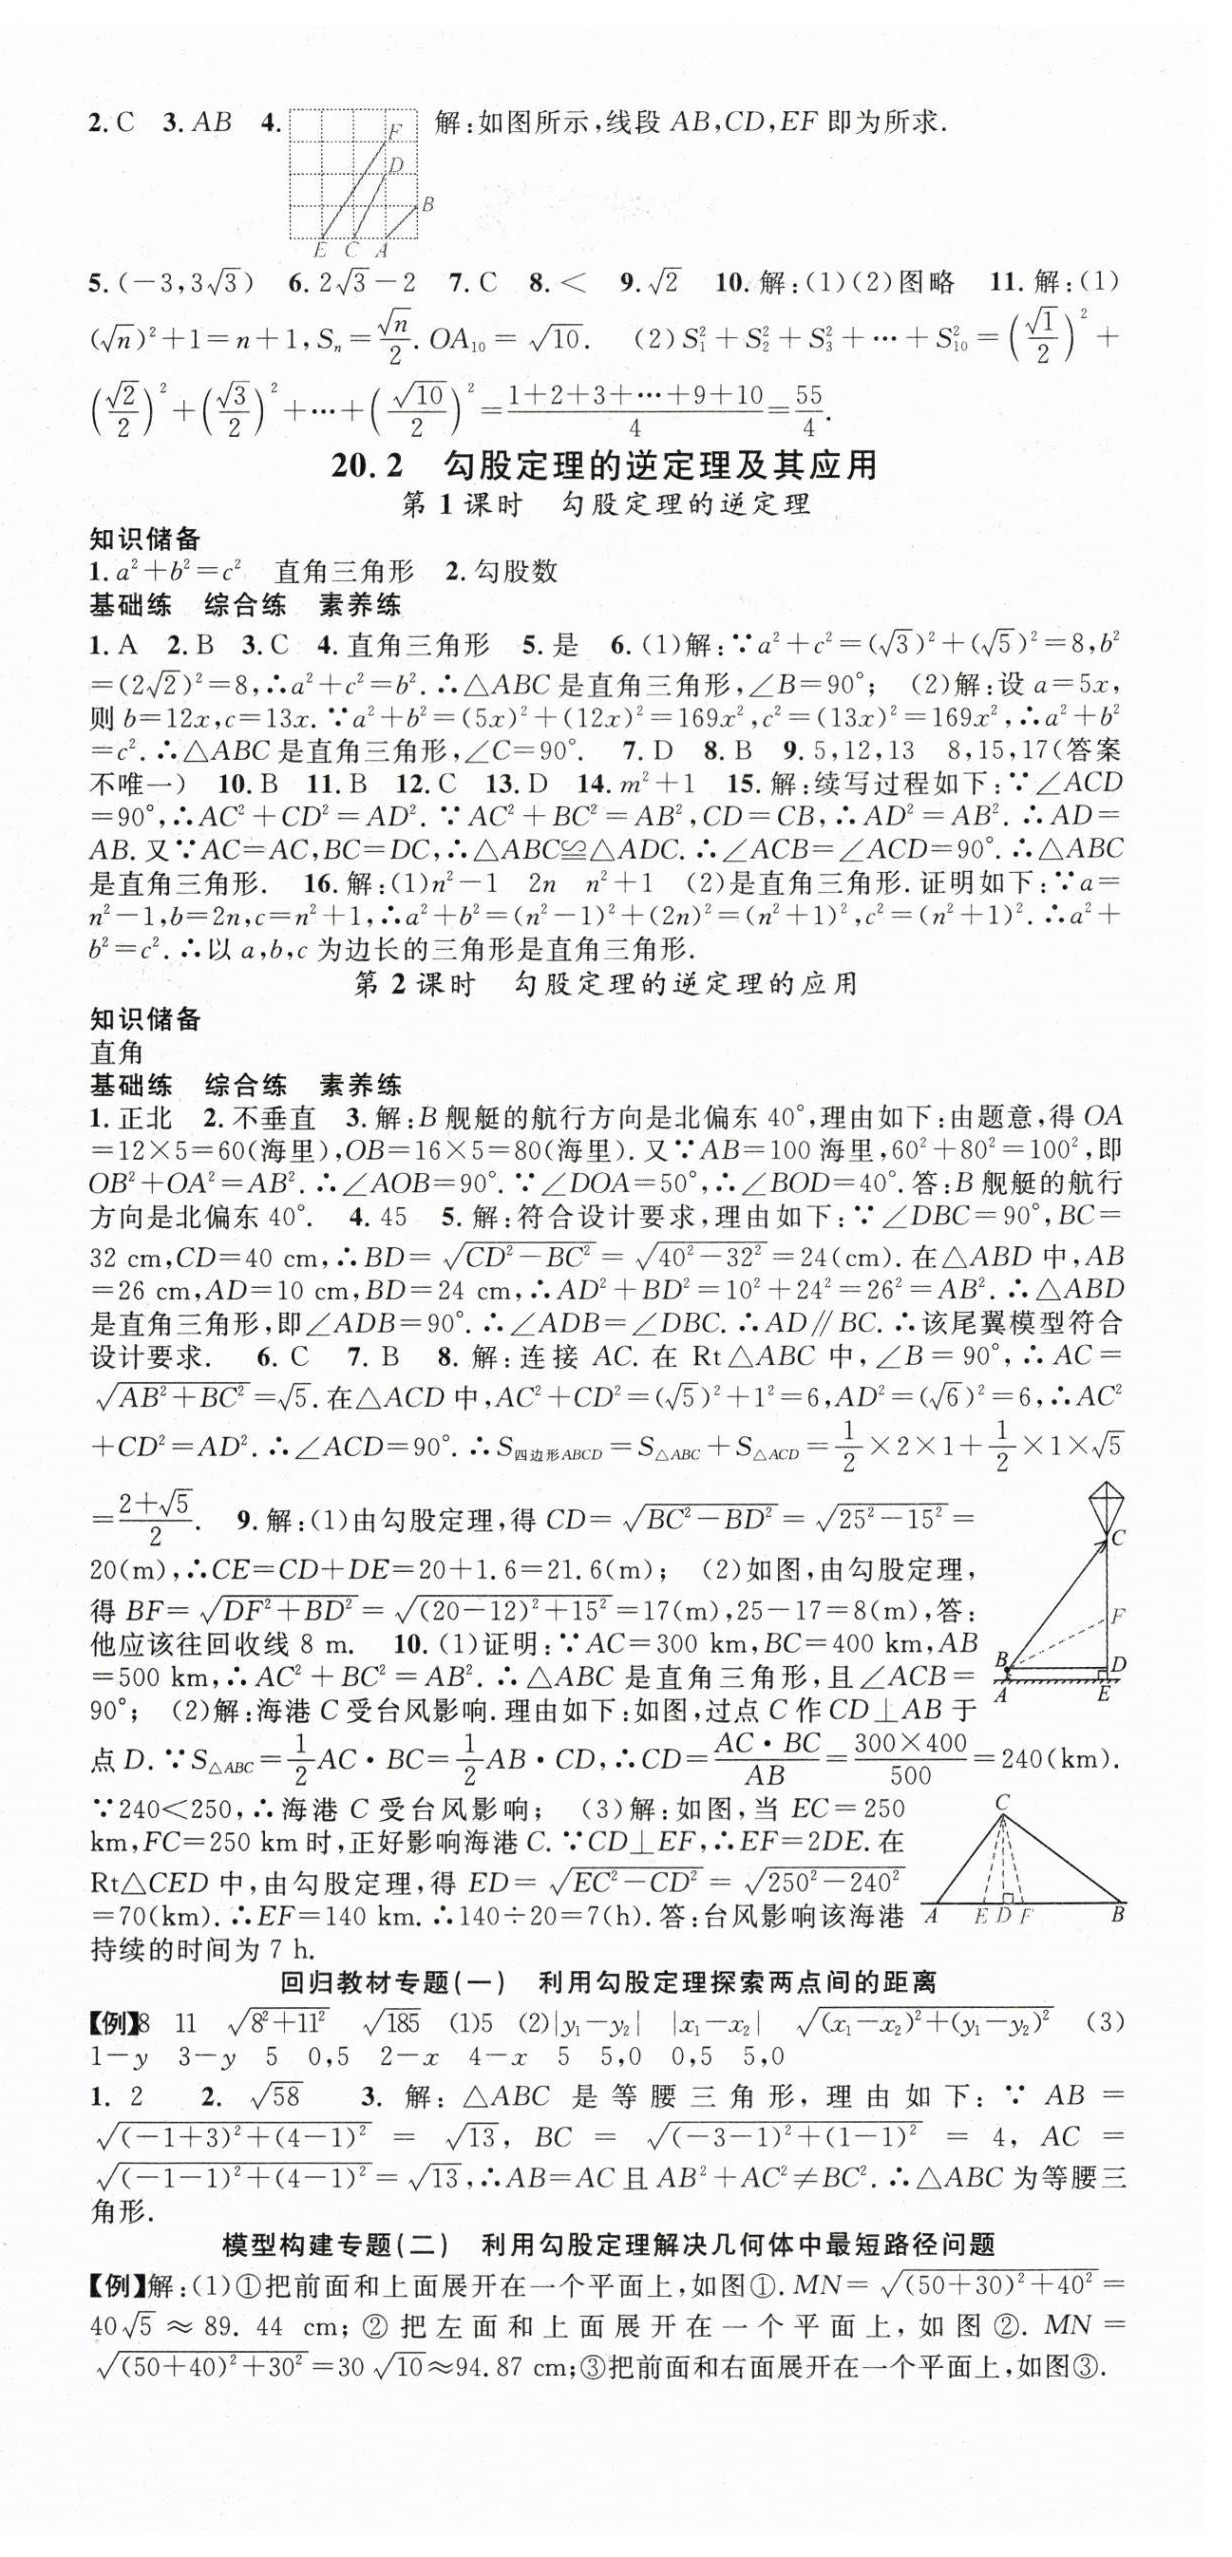 2. C 3. AB 4. 解:如图所示,线段 AB,CD,EF 即为所求.
F
D
B
E C A
5. (-3,3√3) 6. 2√3-2 7. C 8. < 9. √2 10. 解:(1)(2)图略 11. 解:(1)
(√n)²+1=n+1,Sₙ=√n/2. OA₁₀=√10. (2)S₁²+S₂²+S₃²+…+S₁₀²=(√1/2)²+
(√2/2)²+(√3/2)²+…+(√10/2)²=(1+2+3+…+9+10)/4=55/4.
20.2 勾股定理的逆定理及其应用
第1课时 勾股定理的逆定理
知识储备
1. a²+b²=c² 直角三角形 2. 勾股数
基础练 综合练 素养练
1. A 2. B 3. C 4. 直角三角形 5. 是 6. (1)解:∵a²+c²=(√3)²+(√5)²=8,b²
=(2√2)²=8,∴a²+c²=b².∴△ABC是直角三角形,∠B=90°; (2)解:设a=5x,
则b=12x,c=13x.∵a²+b²=(5x)²+(12x)²=169x²,c²=(13x)²=169x²,∴a²+b²
=c².∴△ABC是直角三角形,∠C=90°. 7. D 8. B 9. 5,12,13 8,15,17(答案
不唯一) 10. B 11. B 12. C 13. D 14. m²+1 15. 解:续写过程如下:∵∠ACD
=90°,∴AC²+CD²=AD².∵AC²+BC²=AB²,CD=CB,∴AD²=AB².∴AD=
AB.又∵AC=AC,BC=DC,∴△ABC≌△ADC.∴∠ACB=∠ACD=90°.∴△ABC
是直角三角形. 16. 解:(1)n²-1 2n n²+1 (2)是直角三角形.证明如下:∵a=
n²-1,b=2n,c=n²+1,∴a²+b²=(n²-1)²+(2n)²=(n²+1)²,c²=(n²+1)².∴a²+
b²=c².∴以a,b,c为边长的三角形是直角三角形.
第2课时 勾股定理的逆定理的应用
知识储备
直角
基础练 综合练 素养练
1. 正北 2. 不垂直 3. 解:B舰艇的航行方向是北偏东40°,理由如下:由题意,得OA
=12×5=60(海里),OB=16×5=80(海里).又∵AB=100海里,60²+80²=100²,即
OB²+OA²=AB².∴∠AOB=90°.∵∠DOA=50°,∴∠BOD=40°.答:B舰艇的航行
方向是北偏东40°. 4. 45 5. 解:符合设计要求,理由如下:∵∠DBC=90°,BC=
32 cm,CD=40 cm,∴BD=√(CD²-BC²)=√(40²-32²)=24(cm).在△ABD中,AB
=26 cm,AD=10 cm,BD=24 cm,∴AD²+BD²=10²+24²=26²=AB².∴△ABD
是直角三角形,即∠ADB=90°.∴∠ADB=∠DBC.∴AD∥BC.∴该尾翼模型符合
设计要求. 6. C 7. B 8. 解:连接AC.在Rt△ABC中,∠B=90°,∴AC=
√(AB²+BC²)=√5.在△ACD中,AC²+CD²=(√5)²+1²=6,AD²=(√6)²=6,∴AC²
+CD²=AD².∴∠ACD=90°.∴S四边形ABCD=S△ABC+S△ACD=1/2×2×1+1/2×1×√5
=(2+√5)/2. 9. 解:(1)由勾股定理,得CD=√(BC²-BD²)=√(25²-15²)=
20(m),∴CE=CD+DE=20+1.6=21.6(m); (2)如图,由勾股定理,
得BF=√(DF²+BD²)=√((20-12)²+15²)=17(m),25-17=8(m),答:
他应该往回收线8 m. 10. (1)证明:∵AC=300 km,BC=400 km,AB
=500 km,∴AC²+BC²=AB².∴△ABC是直角三角形,且∠ACB=
90°; (2)解:海港C受台风影响.理由如下:如图,过点C作CD⊥AB于
C
F
B D
A E
点D.∵S△ABC=1/2AC·BC=1/2AB·CD,∴CD=AC·BC/AB=300×400/500=240(km).
∵240<250,∴海港C受台风影响; (3)解:如图,当EC=250
km,FC=250 km时,正好影响海港C.∵CD⊥EF,∴EF=2DE.在
Rt△CED中,由勾股定理,得ED=√(EC²-CD²)=√(250²-240²)
=70(km).∴EF=140 km.∴140÷20=7(h).答:台风影响该海港
持续的时间为7 h.
C
A E D F B
回归教材专题(一) 利用勾股定理探索两点间的距离
【例】8 11 √(8²+11²) √185 (1)5 (2)|y₁-y₂| |x₁-x₂| √((x₁-x₂)²+(y₁-y₂)²) (3)
1-y 3-y 5 0,5 2-x 4-x 5 5,0 0,5 5,0
1. 2 2. √58 3. 解:△ABC是等腰三角形,理由如下:∵AB=
√((-1+3)²+(4-1)²)=√13,BC=√((-3-1)²+(1-1)²)=4,AC=
√((-1-1)²+(4-1)²)=√13,∴AB=AC且AB²+AC²≠BC².∴△ABC为等腰三
角形.
模型构建专题(二) 利用勾股定理解决几何体中最短路径问题
【例】解:(1)①把前面和上面展开在一个平面上,如图①.MN=√((50+30)²+40²)=
40√5≈89.44 cm;②把左面和上面展开在一个平面上,如图②.MN=
√((50+40)²+30²)=30√10≈94.87 cm;③把前面和右面展开在一个平面上,如图③.